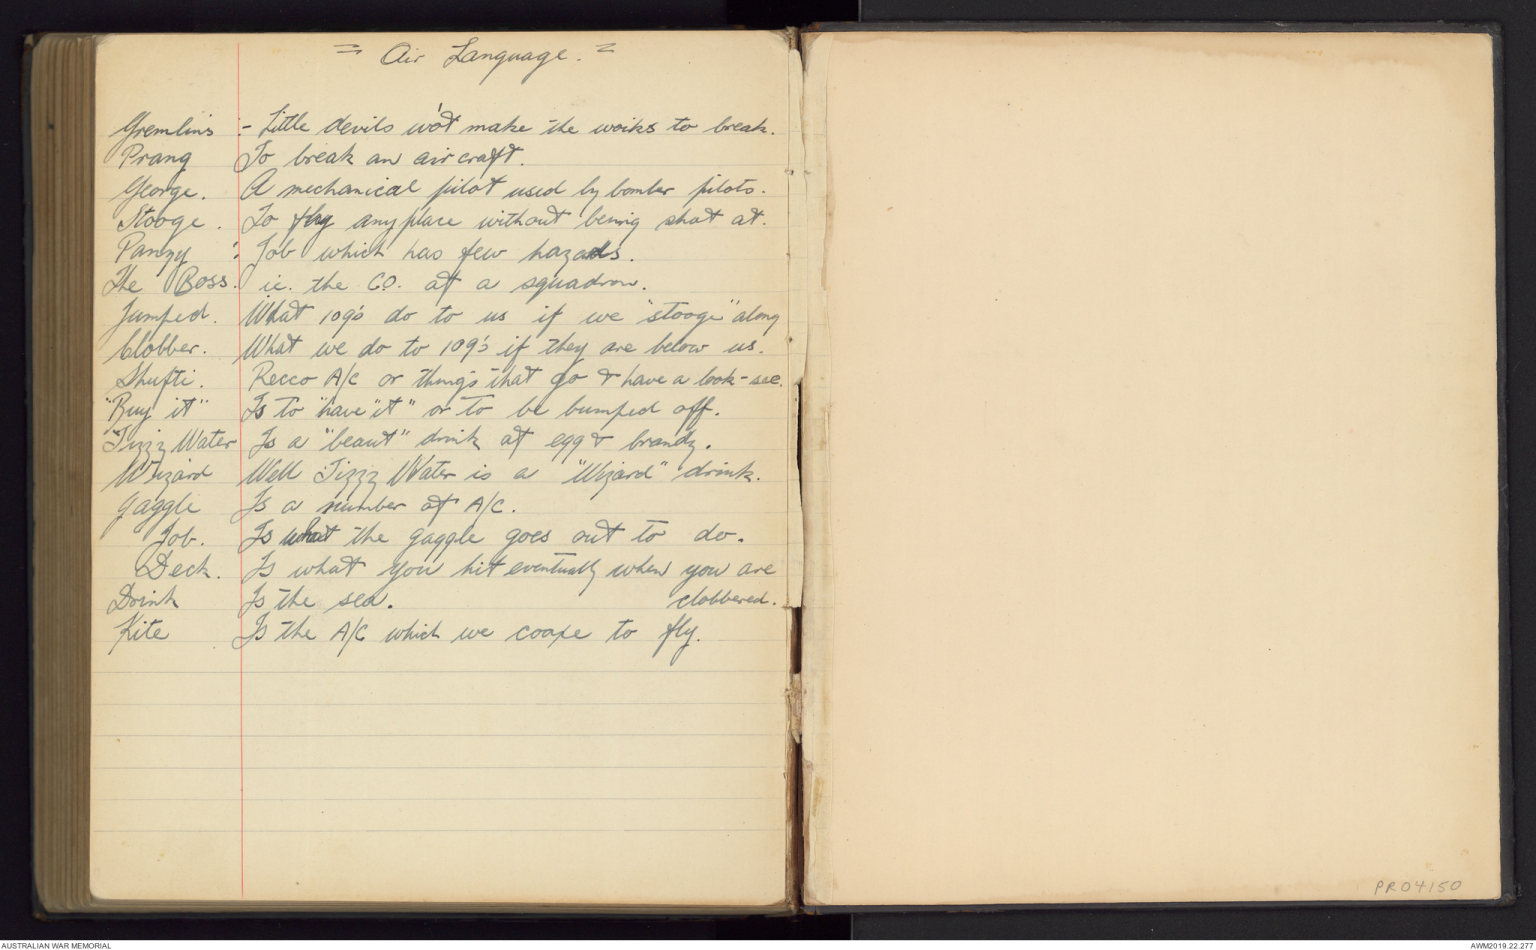 = Air Language. =
Gremlins :- Little devils wo't make the woiks to break.
Prang To break an aircraft.
George. A mechanical pilot used by bomber pilots.
Stooge. To fly anyplace without being shot at.
Panzy : Job which has few hazards.
The Boss. ie. the C.O. of a squadron.
Jumped. What 109's do to us if we "stooge" along
Clobber. What we do to 109's if they are below us.
Shufti. Recco A/C or things that go & have a look-see.
"Buy it" Is to "have "it" or to be bumped off.
Jizzz Water Is a "beaut" drink of egg & brandy.
Wizard Well Jizzz Water is a "Wizard" drink.
Gaggle Is a number of A/C.
Job. Is what the gaggle goes out to do.
Deck. Is what you hit eventually when you are
clobbered.
Drink Is the sea.
Kite Is the A/C which we coaxe to fly.
PR04150
AUSTRALIAN WAR MEMORIAL
AWM2019.22.277